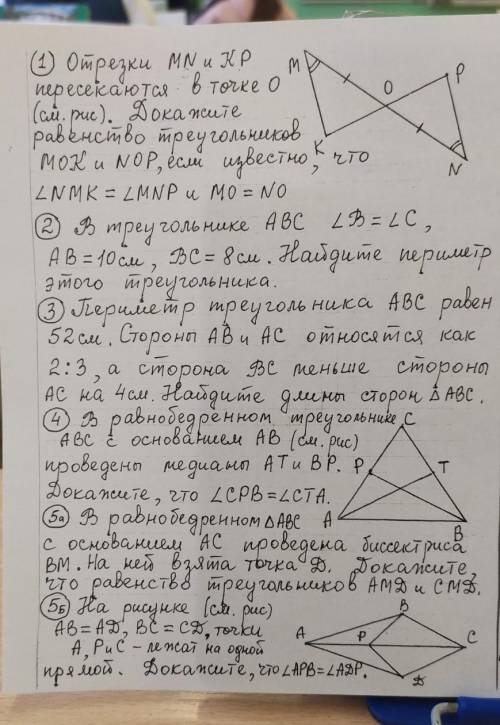 ① Отрезки MN и KP
пересекаются в точке O
(см. рис). Докажите
равенство треугольников
MOK и NOP, если известно, что
∠NMK = ∠MNP и MO = NO
② В треугольнике ABC ∠B = ∠C,
AB = 10 см, BC = 8 см. Найдите периметр
этого треугольника.
③ Периметр треугольника ABC равен
52 см. Стороны AB и AC относятся как
2:3, а сторона BC меньше стороны
AC на 4 см. Найдите длины сторон △ABC.
④ В равнобедренном треугольнике
ABC с основанием AB (см. рис)
проведены медианы AT и BP.
Докажите, что ∠CPB = ∠CTA.
5а В равнобедренном △ABC
с основанием AC проведена биссектриса
BM. На ней взята точка D. Докажите,
что равенство треугольников AMD и CMD.
5б На рисунке (см. рис)
AB = AD, BC = CD, точки
A, P и C – лежат на одной
прямой. Докажите, что ∠APB = ∠ADP.
M
O
P
K
N
C
P
T
A
B
B
A
P
C
D